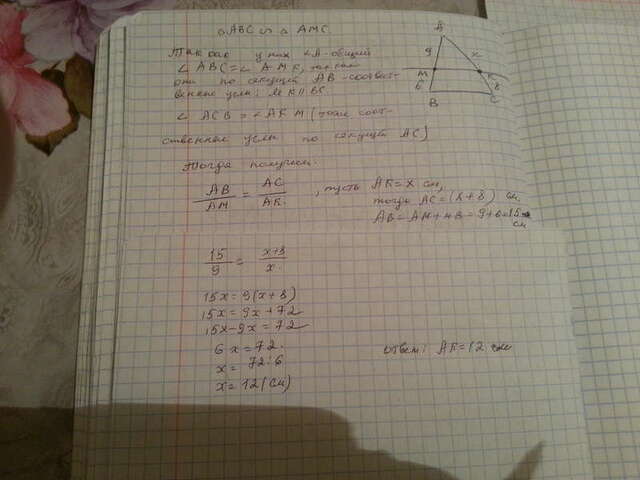 △ABC ∽ △ AMC.
Так как у них ∠A-общий
∠ ABC = ∠ AMK, так как
они по секущей AB-соответ-
венные углы; MK || BC.
∠ ACB = ∠AKM (тоже соот-
ственные углы по секущей AC)
Тогда получим.
AB/AM = AC/AK, пусть AK = x см,
тогда AC = (x+8) см.
AB = AM + MB = 9+6=15 см
15/9 = x+8/x.
15x = 9(x+8)
15x = 9x+72
15x-9x = 72
6x = 72.
x = 72:6
x = 12 (см)
ответ: AK=12 см
A
9
x
M
K
6
8
B
C